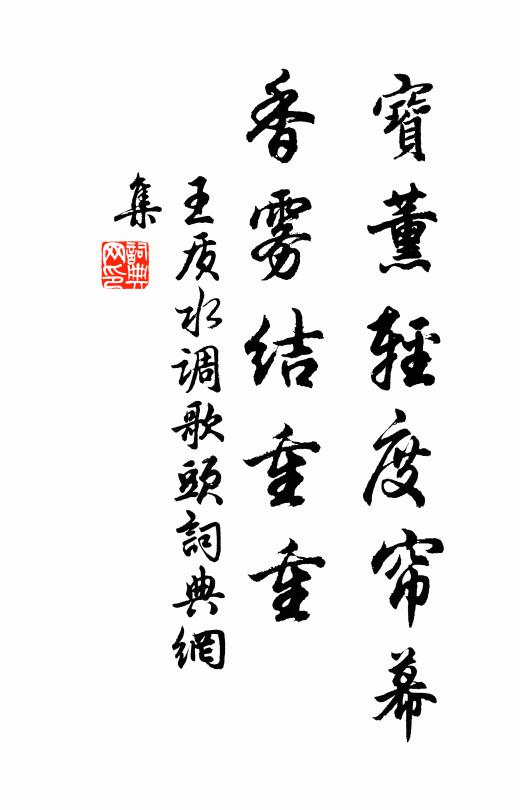 寶薰輕度帘幕
香雾結重重
王质水调歌頭詞典網
集
詞典网印